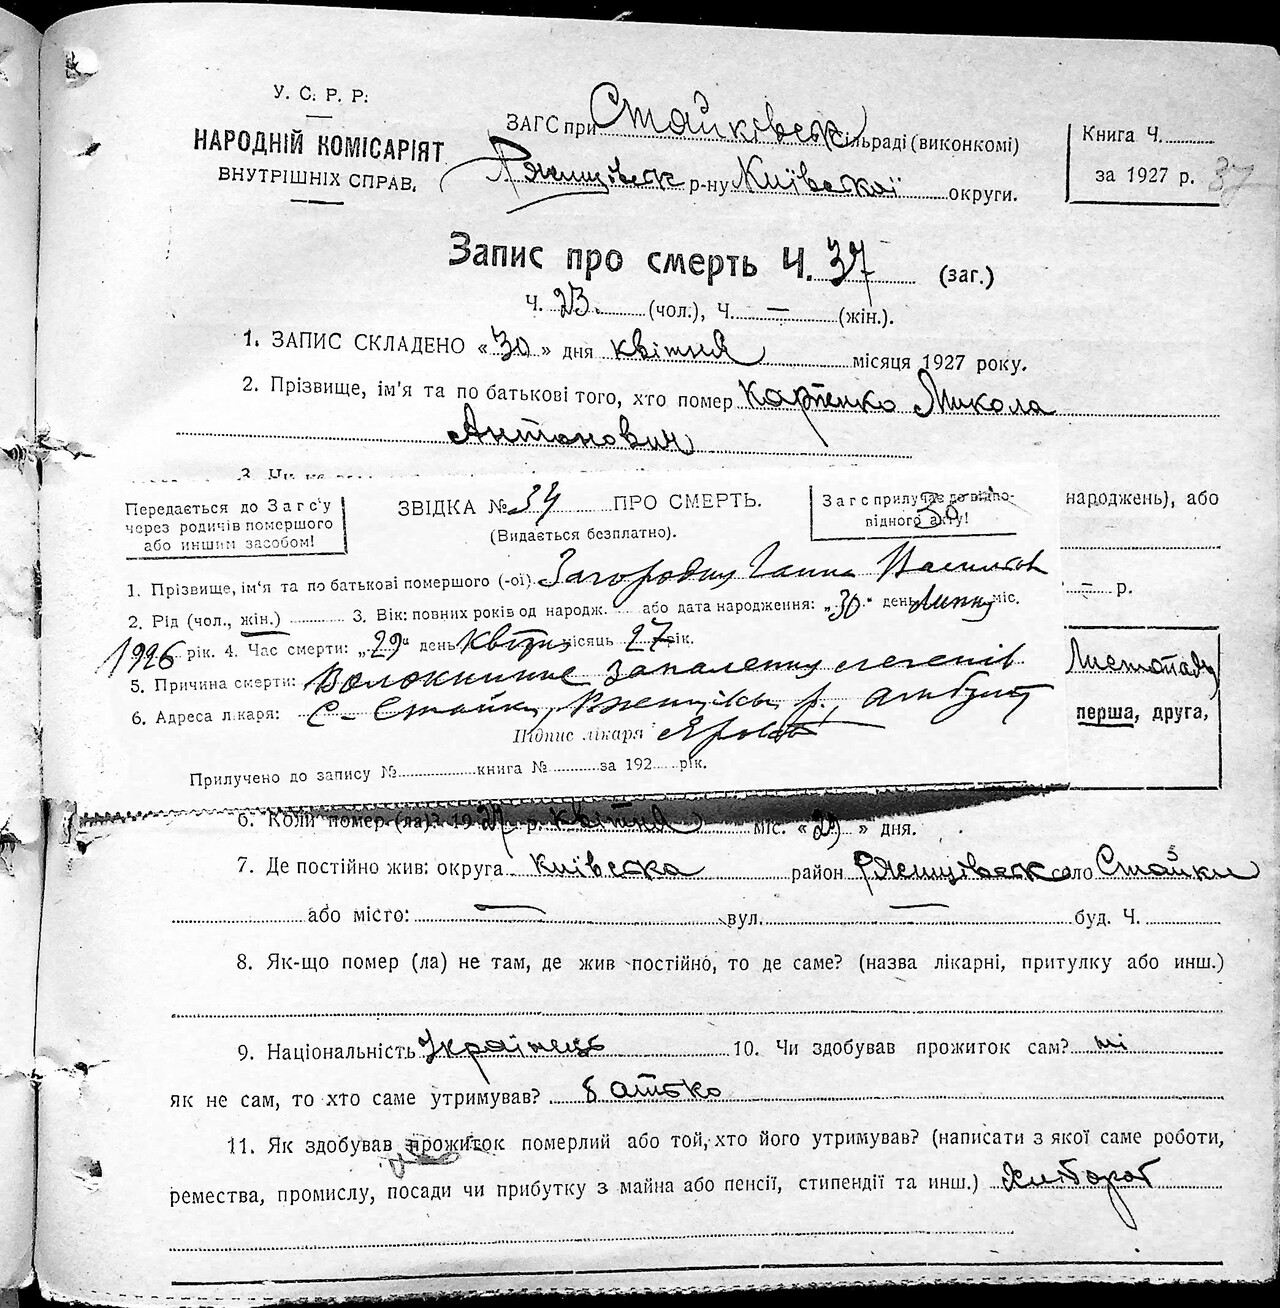 У. С. Р. Р.
НАРОДНІЙ КОМІСАРІЯТ
ВНУТРІШНІХ СПРАВ.
ЗАГС при Стайківськ сільраді (виконкомі)
Ржищівськ р-ну Київської округи.
Книга Ч.
за 1927 р. 37
Запис про смерть Ч. 37 (заг.)
Ч. 23 (чол.), Ч. — (жін.).
1. ЗАПИС СКЛАДЕНО «30» дня квітня місяця 1927 року.
2. Прізвище, ім'я та по батькові того, хто помер Карпенко Микола
Антонович
3.
народжень), або
р.
Листопаду
перша, друга,
Передається до Загс'у
через родичів помершого
або иншим засобом!
ЗВІДКА № 34 ПРО СМЕРТЬ.
(Видається безплатно).
Загс прилучає до відпо-
відного акту!
30
1. Прізвище, ім'я та по батькові помершого (-ої) Загородня Ганна Васильов
2. Рід (чол., жін.) 3. Вік: повних років од народж. або дата народження: „30" день Липня міс.
1926 рік. 4. Час смерти: „29" день Квітня місяць 27 рік.
5. Причина смерти: запалення легенів
6. Адреса лікаря: с. Стайки, р.
Підпис лікаря
Прилучено до запису № книга № за 192 рік.
6. Коли помер (ла)? 1927 р. квітня міс. «29» дня.
7. Де постійно жив: округа Київська район Ржищівськ село Стайки
або місто: — вул. — буд. Ч.
8. Як-що помер (ла) не там, де жив постійно, то де саме? (назва лікарні, притулку або инш.)
9. Національність Українець 10. Чи здобував прожиток сам? ні
як не сам, то хто саме утримував? батько
11. Як здобував прожиток померлий або той, хто його утримував? (написати з якої саме роботи,
ремества, промислу, посади чи прибутку з майна або пенсії, стипендії та инш.) Хлібороб